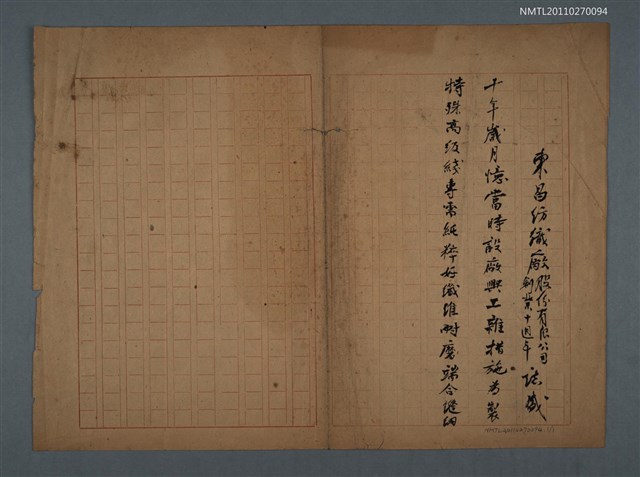 NMTL20110270094
東昌紡織廠股份有限公司創業十週年誌盛
十年歲月憶當時設廠興工難措施。為製
特殊高級綫專需純粹好纖維耐磨端合縫紉